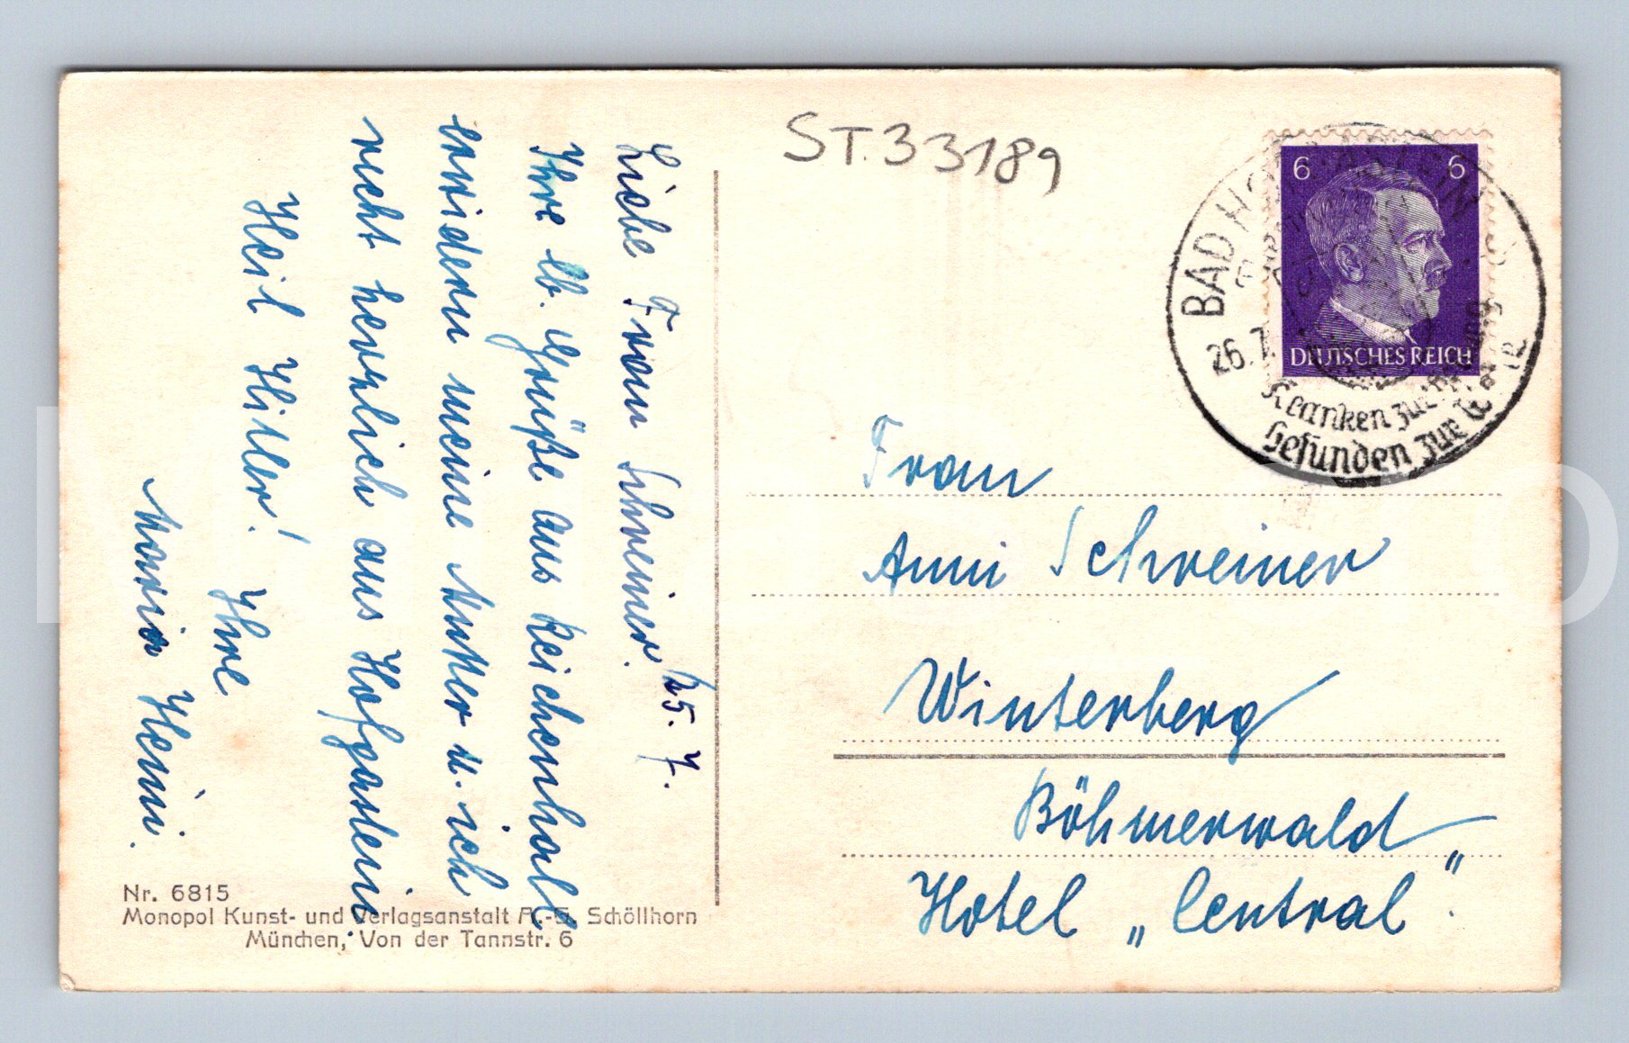 ST.33189
25. 7.
Liebe Frau Schreiner!
Ihre lb. Grüße aus Reichenhall
erwidern meine Mutter u. ich
recht herzlich aus Hofgastein
Heil Hitler! Ihre
Maria Heini.
Nr. 6815
Monopol Kunst- und Verlagsanstalt A.-G. Schöllhorn
München, Von der Tannstr. 6
6 6
DEUTSCHES REICH
BAD HOFGASTEIN
26. 7.
Kranken zur
Gesunden zur
Frau
Anni Schreiner
Winterberg
Böhmerwald
Hotel „Central".